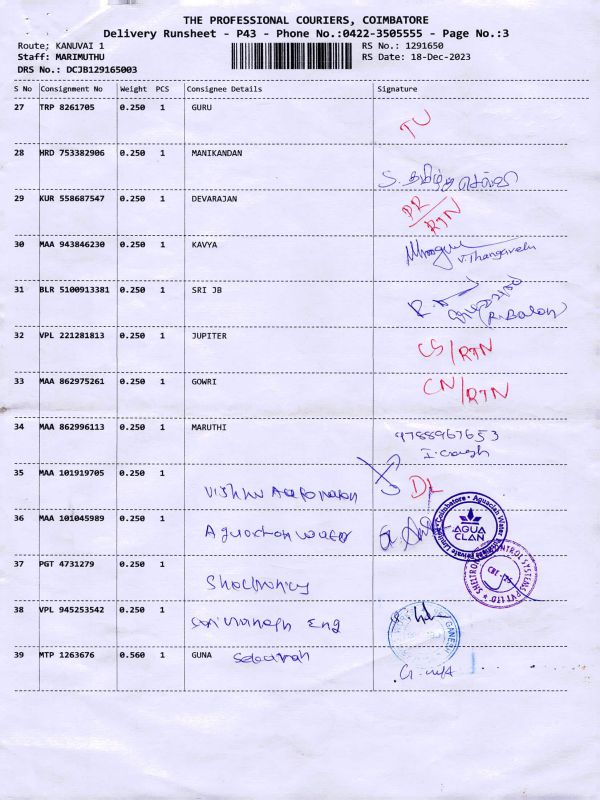 THE PROFESSIONAL COURIERS, COIMBATORE
Delivery Runsheet - P43 - Phone No.:0422-3505555 - Page No.:3
Route; KANUVAI 1 RS No.: 1291650
Staff: MARIMUTHU RS Date: 18-Dec-2023
DRS No.: DCJB129165003
S No Consignment No Weight PCS Consignee Details Signature
27 TRP 8261705 0.250 1 GURU
TU
28 HRD 753382906 0.250 1 MANIKANDAN
S. தமிழ்ச் செல்வி
29 KUR 558687547 0.250 1 DEVARAJAN
DR/RTN
30 MAA 943846230 0.250 1 KAVYA
V.Thangavelu
31 BLR 5100913381 0.250 1 SRI JB
(R.Balan)
32 VPL 221281813 0.250 1 JUPITER
CS/RTN
33 MAA 862975261 0.250 1 GOWRI
CN/RTN
34 MAA 862996113 0.250 1 MARUTHI
9788967653
35 MAA 101919705 0.250 1
DL
36 MAA 101045989 0.250 1
AQUA CLAN
37 PGT 4731279 0.250 1
38 VPL 945253542 0.250 1
Eng
39 MTP 1263676 0.560 1 GUNA